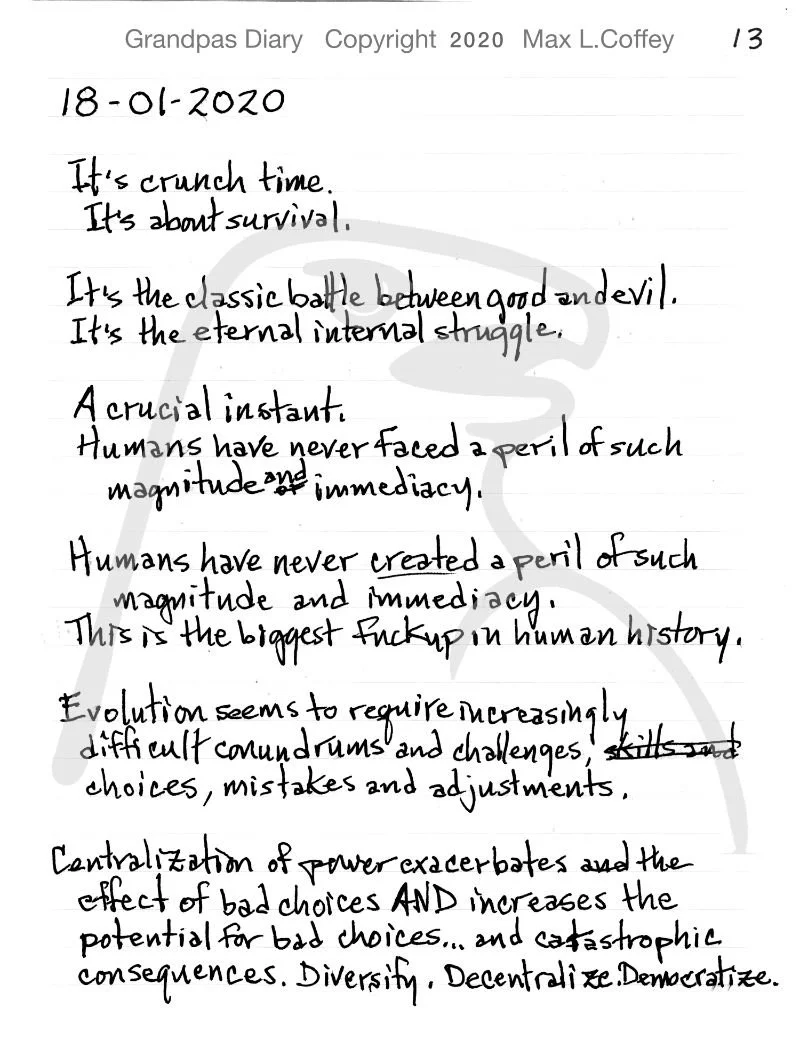 Grandpas Diary Copyright 2020 Max L.Coffey 13
18-01-2020
It's crunch time.
It's about survival.
It's the classic battle between good and evil.
It's the eternal internal struggle.
A crucial instant.
Humans have never faced a peril of such
magnitude and immediacy.
Humans have never created a peril of such
magnitude and immediacy.
This is the biggest fuckup in human history.
Evolution seems to require increasingly
difficult conundrums and challenges, skills and
choices, mistakes and adjustments.
Centralization of power exacerbates and the
effect of bad choices AND increases the
potential for bad choices... and catastrophic
consequences. Diversify. Decentralize. Democratize.